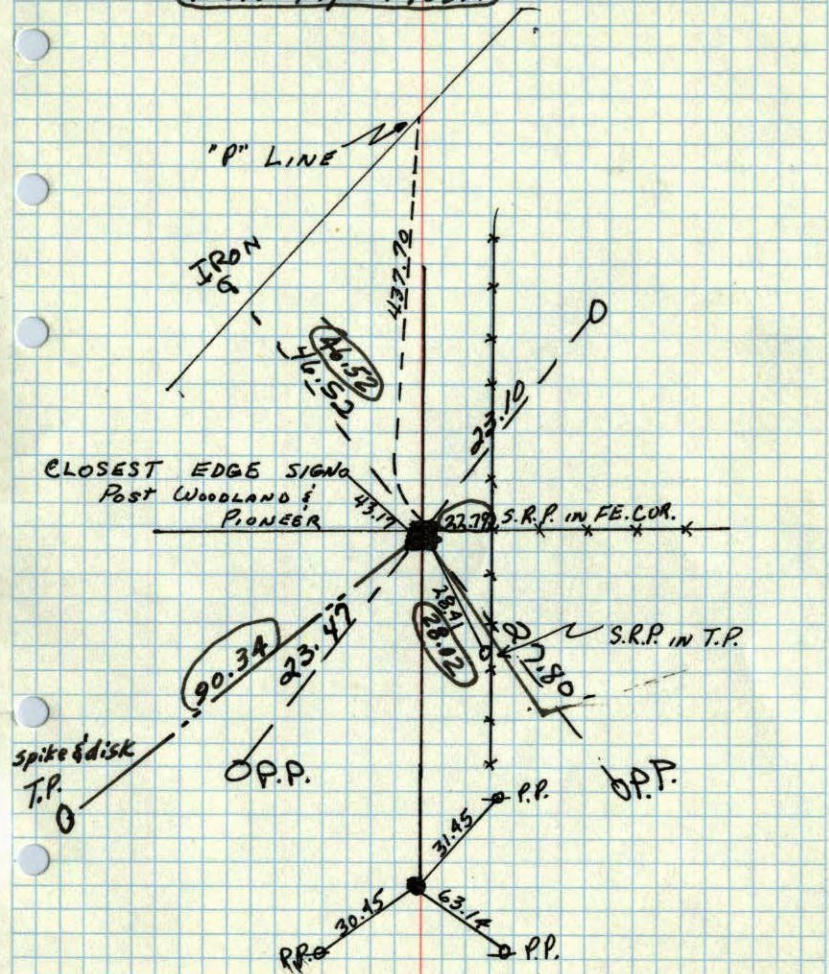 "P" LINE
IRON
437.70
46.52
46.52
23.10
CLOSEST EDGE SIGN
POST WOODLAND &
PIONEER
43.17
22.79
S.R.P. IN FE. COR.
28.41
28.02
27.80
S.R.P. IN T.P.
90.34
23.47
spike & disk
T.P.
P.P.
P.P.
P.P.
31.45
30.45
63.14
P.P.
P.P.